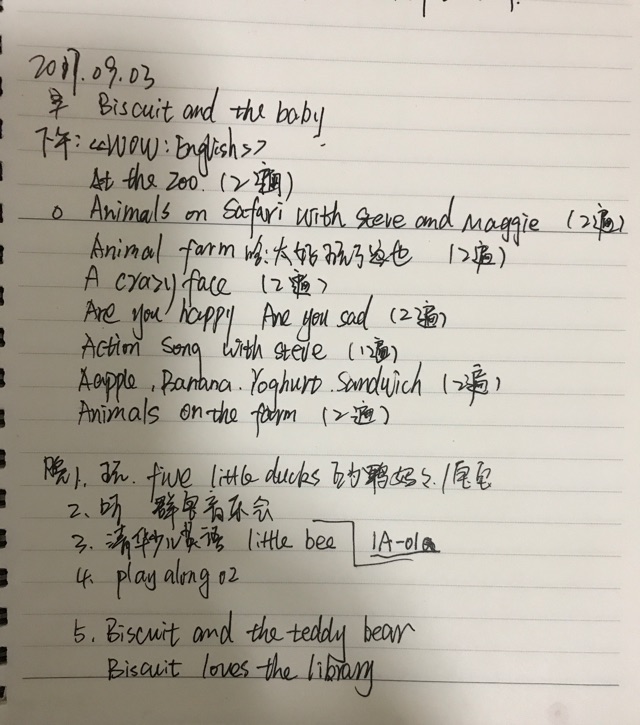 2017.09.03
早 Biscuit and the baby
下午:<<WOW:English>>
At the zoo. (2遍)
Animals on Safari with steve and Maggie (2遍)
Animal farm 哈:太好玩了这也 (2遍)
A crazy face (2遍)
Are you happy Are you sad (2遍)
Action Song with steve (1遍)
Aapple, Banana. Yoghurt. Sandwich (2遍)
Animals on the farm (2遍)
晚1. 玩. five little ducks 鸭妈妈
2、听 音乐会
3. 清华少儿英语 little bee 1A-01
4. play along 02
5. Biscuit and the teddy bear
Biscuit loves the library